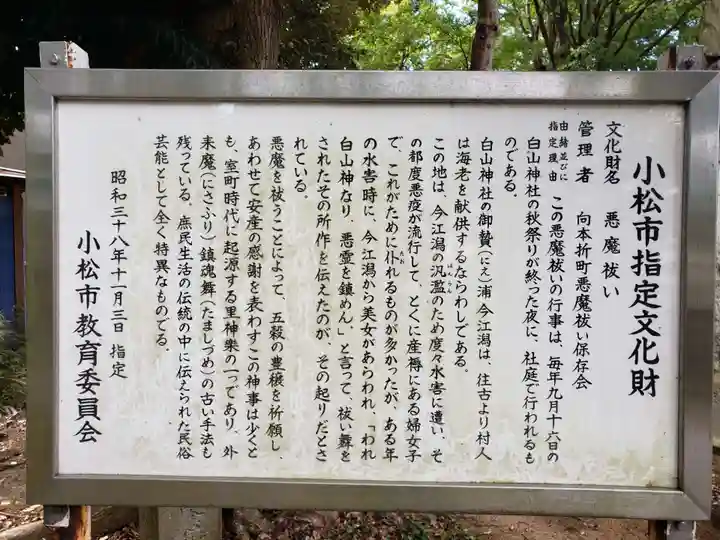 小松市指定文化財
文化財名 悪魔祓い
管理者 向本折町悪魔祓い保存会
由緒並びに
指定理由
この悪魔祓いの行事は、毎年九月十六日の
白山神社の秋祭りが終った夜に、社庭で行われるも
のである。
白山神社の御贄(にえ)浦今江潟は、往古より村人
は海老を献供するならわしである。
この地は、今江潟の汎濫のため度々水害に遭い、そ
はんらん
の都度悪疫が流行して、とくに産褥にある婦女子
で、これがために仆れるものが多かったが、ある年
たお
の水害時に、今江潟から美女があらわれ、「われ
白山神なり、悪霊を鎮めん」、と言って、祓い舞を
されたその所作を伝えたのが、その起りだとさ
れている。
悪魔を祓うことによって、五穀の豊穣を祈願し、
あわせて安産の感謝を表わすこの神事は少くと
も、室町時代に起源する里神楽の一つであり、外
来魔(にさふり)鎮魂舞(たましづめ)の古い手法も
残っている。庶民生活の伝統の中に伝えられた民俗
芸能として全く特異なものてる。
昭和三十八年十一月三日 指定
小松市教育委員会